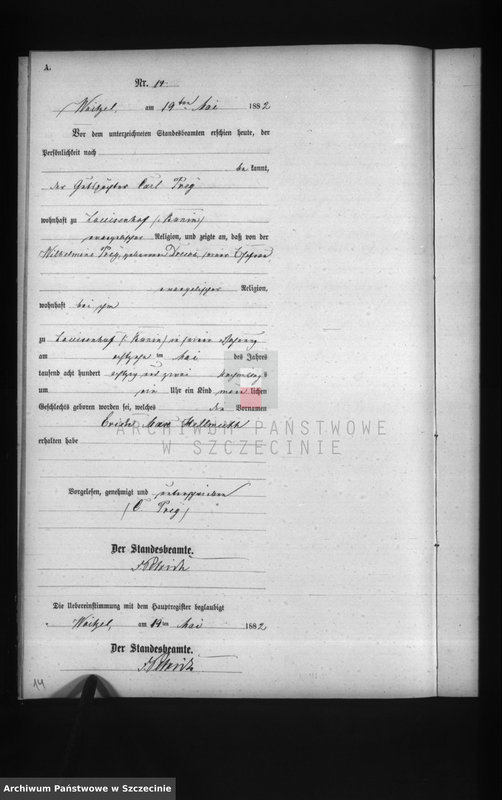 A.
Nr. 14.
Woitzel, am 19ten Mai 1882
Vor dem unterzeichneten Standesbeamten erschien heute, der
Persönlichkeit nach
be kannt,
der Gutspächter Carl
wohnhaft zu Louisenhof
evangelischer Religion, und zeigte an, daß von der
Wilhelmine geborenen seiner Ehefrau
evangelischer Religion,
wohnhaft bei ihm
zu Louisenhof in seiner Wohnung
am achtzehn ten Mai des Jahres
tausend acht hundert achtzig und zwei Nachmittags
um ein Uhr ein Kind männ lichen
Geschlechts geboren worden sei, welches die Vornamen
Max Hellmuth
erhalten habe
ARCHIWUM PAŃSTWOWE
W SZCZECINIE
Vorgelesen, genehmigt und unterschrieben
Der Standesbeamte.
Die Uebereinstimmung mit dem Hauptregister beglaubigt
Woitzel, am 19ten Mai 1882
Der Standesbeamte.
14
Archiwum Państwowe w Szczecinie